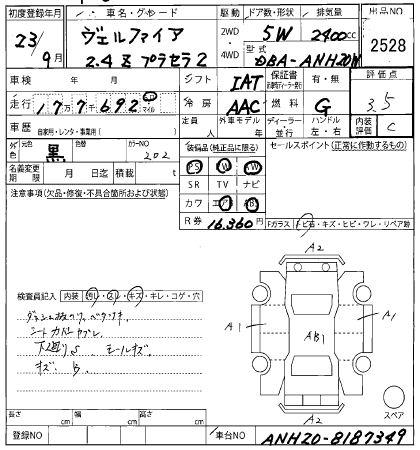 初度登録年月 車名・グレード 駆動 ドア数・形状 排気量 出品NO
23/9月 ヴェルファイア 2WD 5W 2400cc 2528
2.4 Z プラセラ2 4WD 型式 DBA-ANH20W
車検 年 月 シフト IAT 保証書 有・無 評価点
走行 177692 km マイル 冷房 AAC 燃料 G 3.5
車歴 自家用・レンタ・事業用( ) 定員 人 外車モデル 年 ディーラー・並行 ハンドル 左・右 内装評価 C
色 元色 黒 色替 カラーNO 202 装備品(純正品に限る) セールスポイント(正常に作動するもの)
名義変更期限 月 日迄 積載 t PS AW PW
注意事項(欠品・修復・不具合箇所および状態) SR TV ナビ
カワ エアB ABS
R券 16,360円 Fガラス トビ石・キズ・ヒビ・ワレ・リペア跡
A2
検査員記入 内装 汚レ・スレ・キズ・キレ・コゲ・穴
A1 AB1 A1
シートカバー
下廻りS
キズ B
A2
スペア
長さ cm 幅 cm 高さ cm
登録NO 車台NO ANH20-8187349